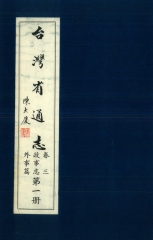 台灣省通志
陳大慶
卷三
政事志
外事篇
第一冊